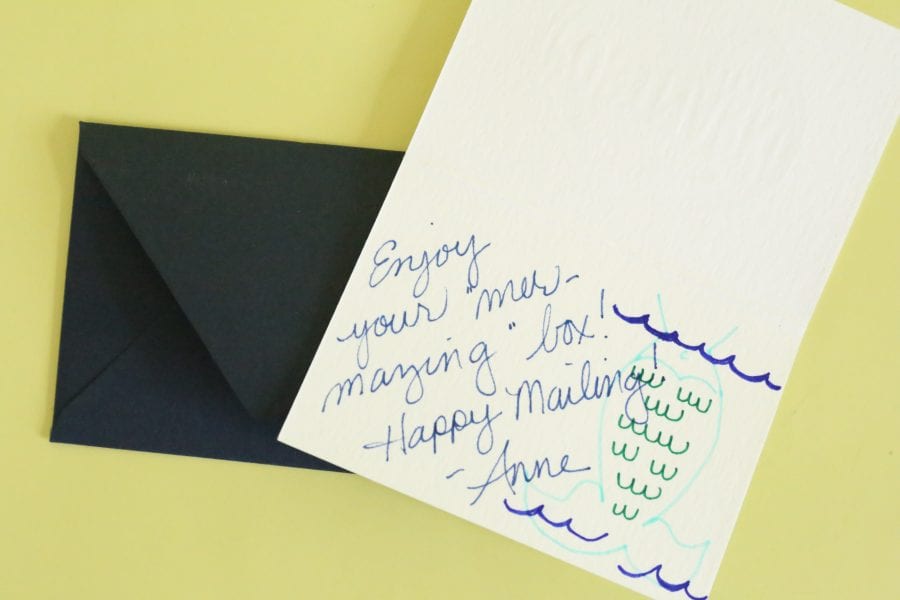 Enjoy
your "mer-
mazing" box!
Happy Mailing!
- Anne